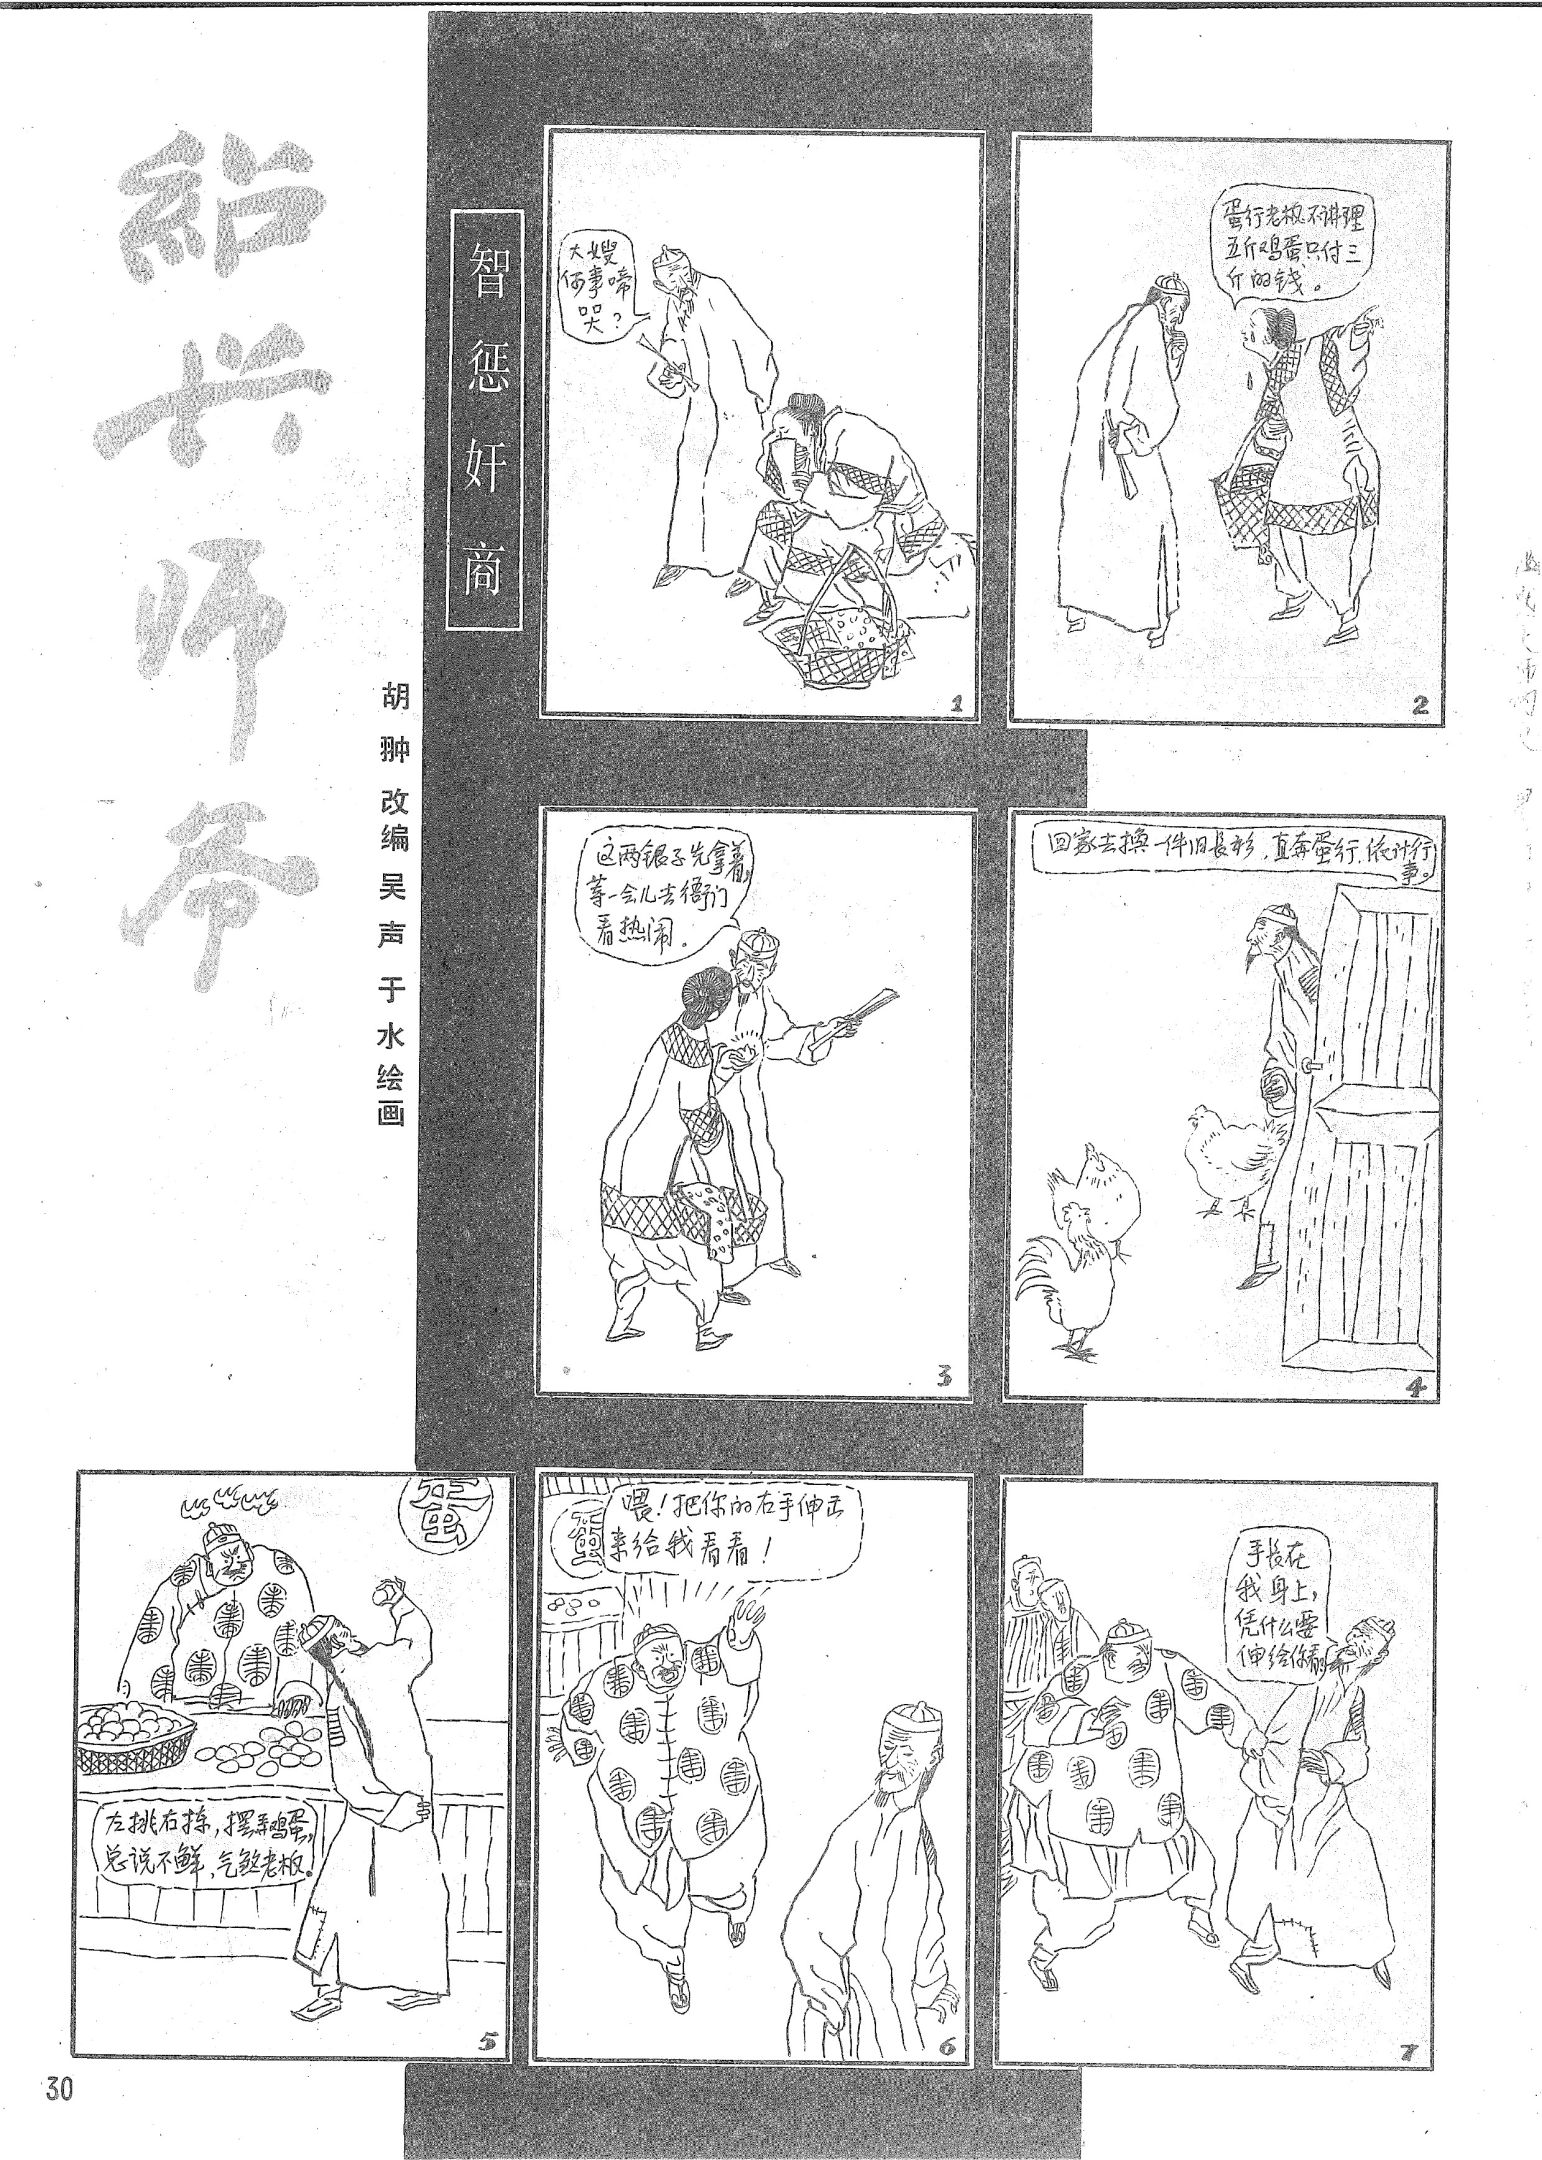 紹兴师爷
智惩奸商
胡翀改编 吴声 于水绘画
大嫂
何事啼
哭？
1
蛋行老板不讲理
五斤鸡蛋只付三
斤的钱。
2
这两银子先拿着，
等一会儿去衙门
看热闹。
3
回家去换一件旧長衫，直奔蛋行，依计行
事。
4
蛋
左挑右拣，摆弄鸡蛋，
总说不鲜，气煞老板。
5
蛋
喂！把你的右手伸出
来给我看看！
6
手長在
我身上，
凭什么要
伸给你看。
7
30